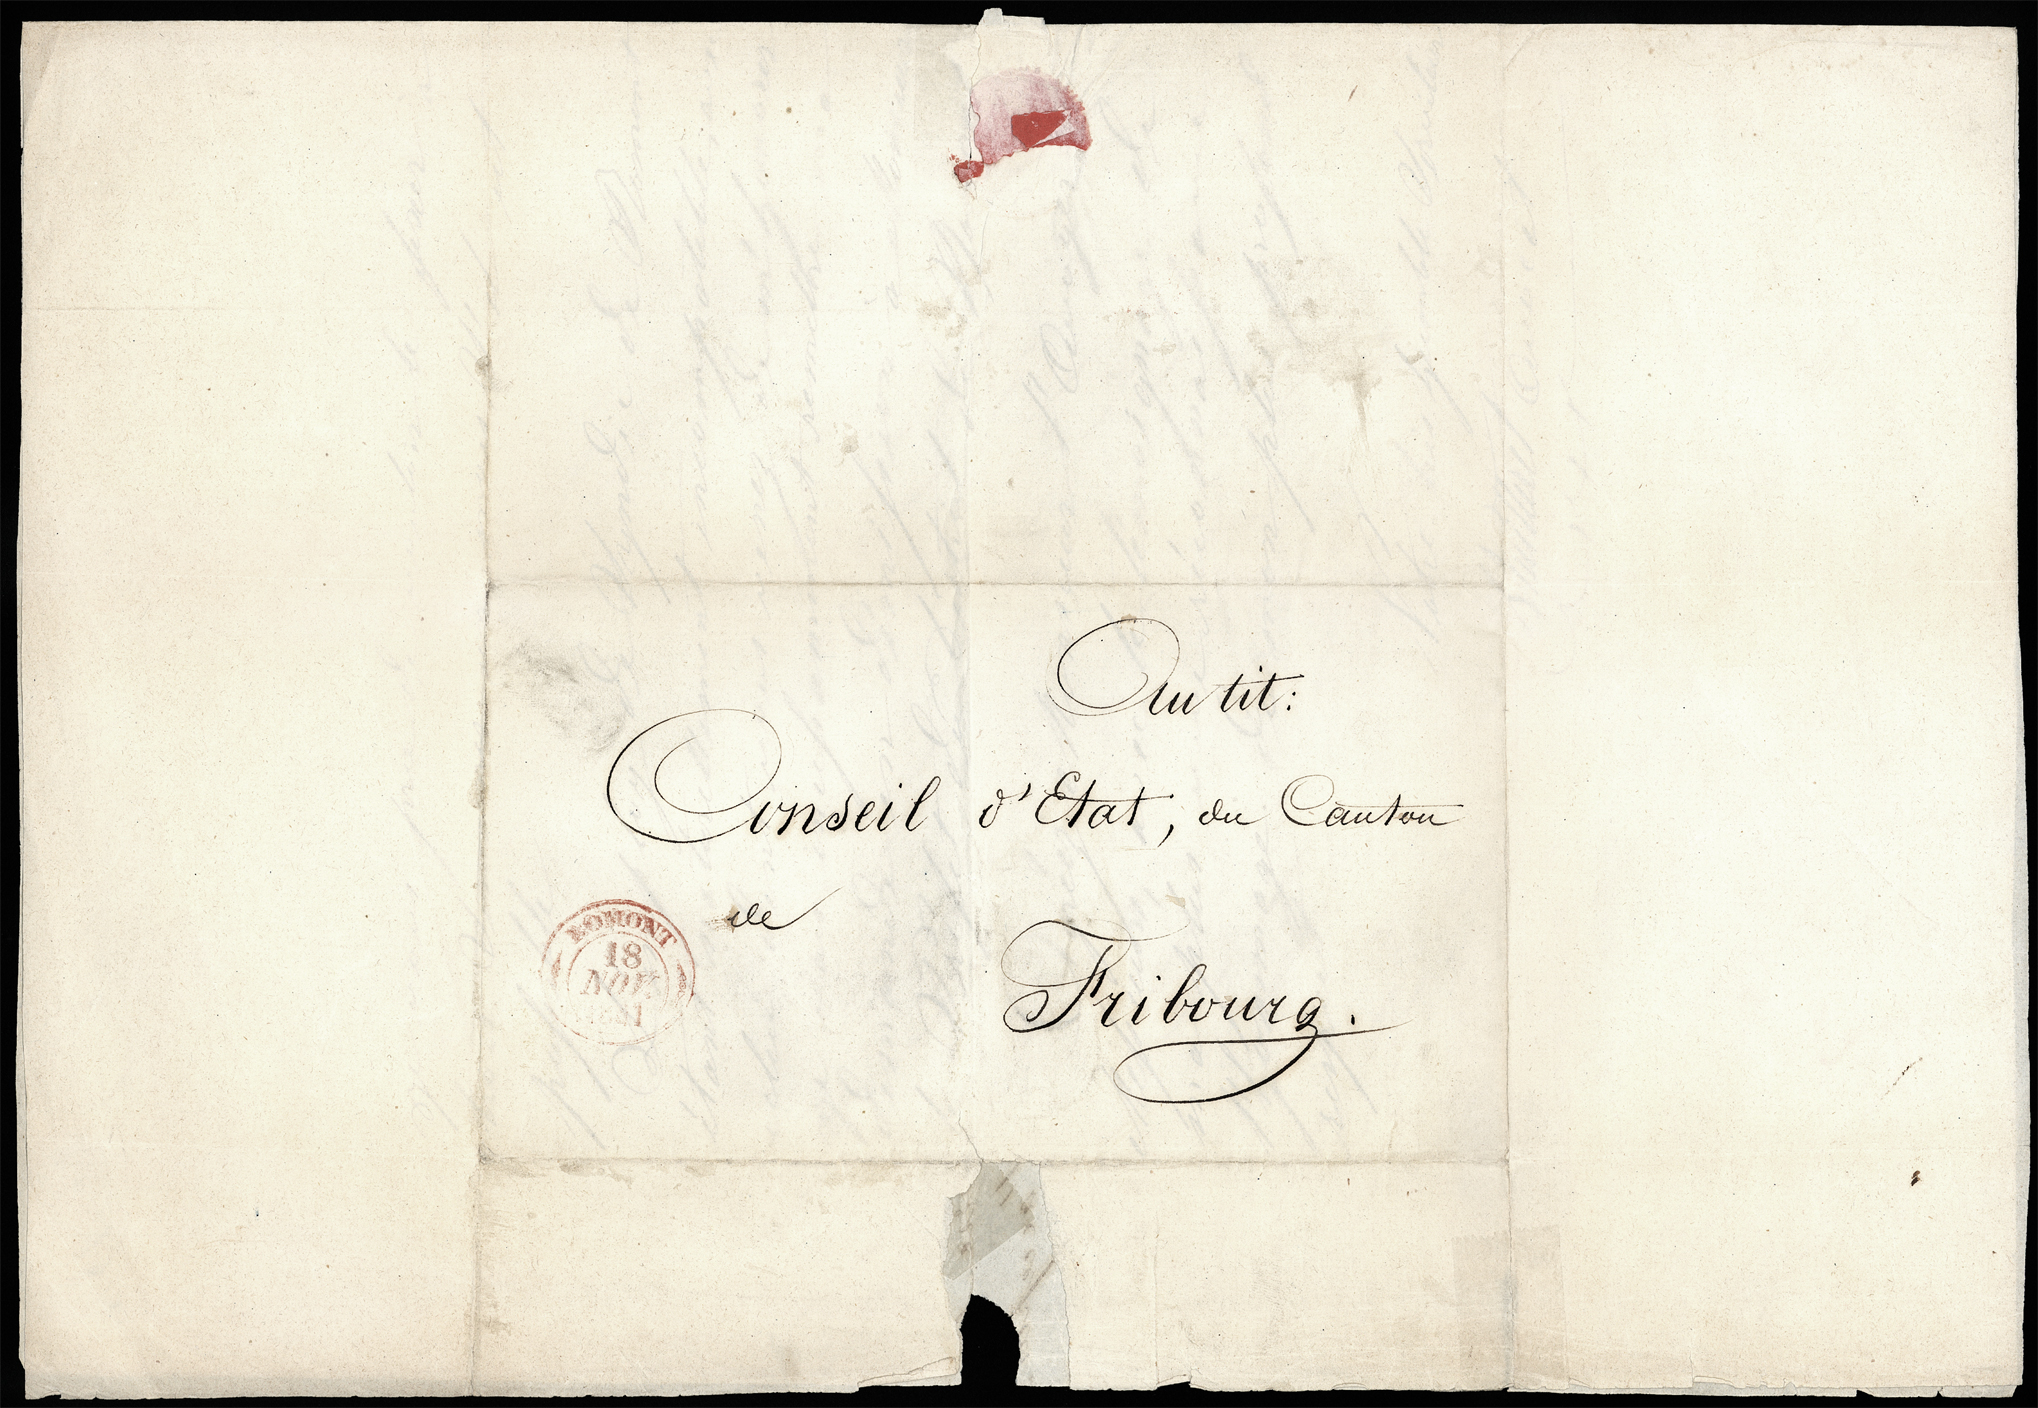 Au tit:
Conseil d'Etat, du Canton
de
Fribourg.
ROMONT
18
NOV.